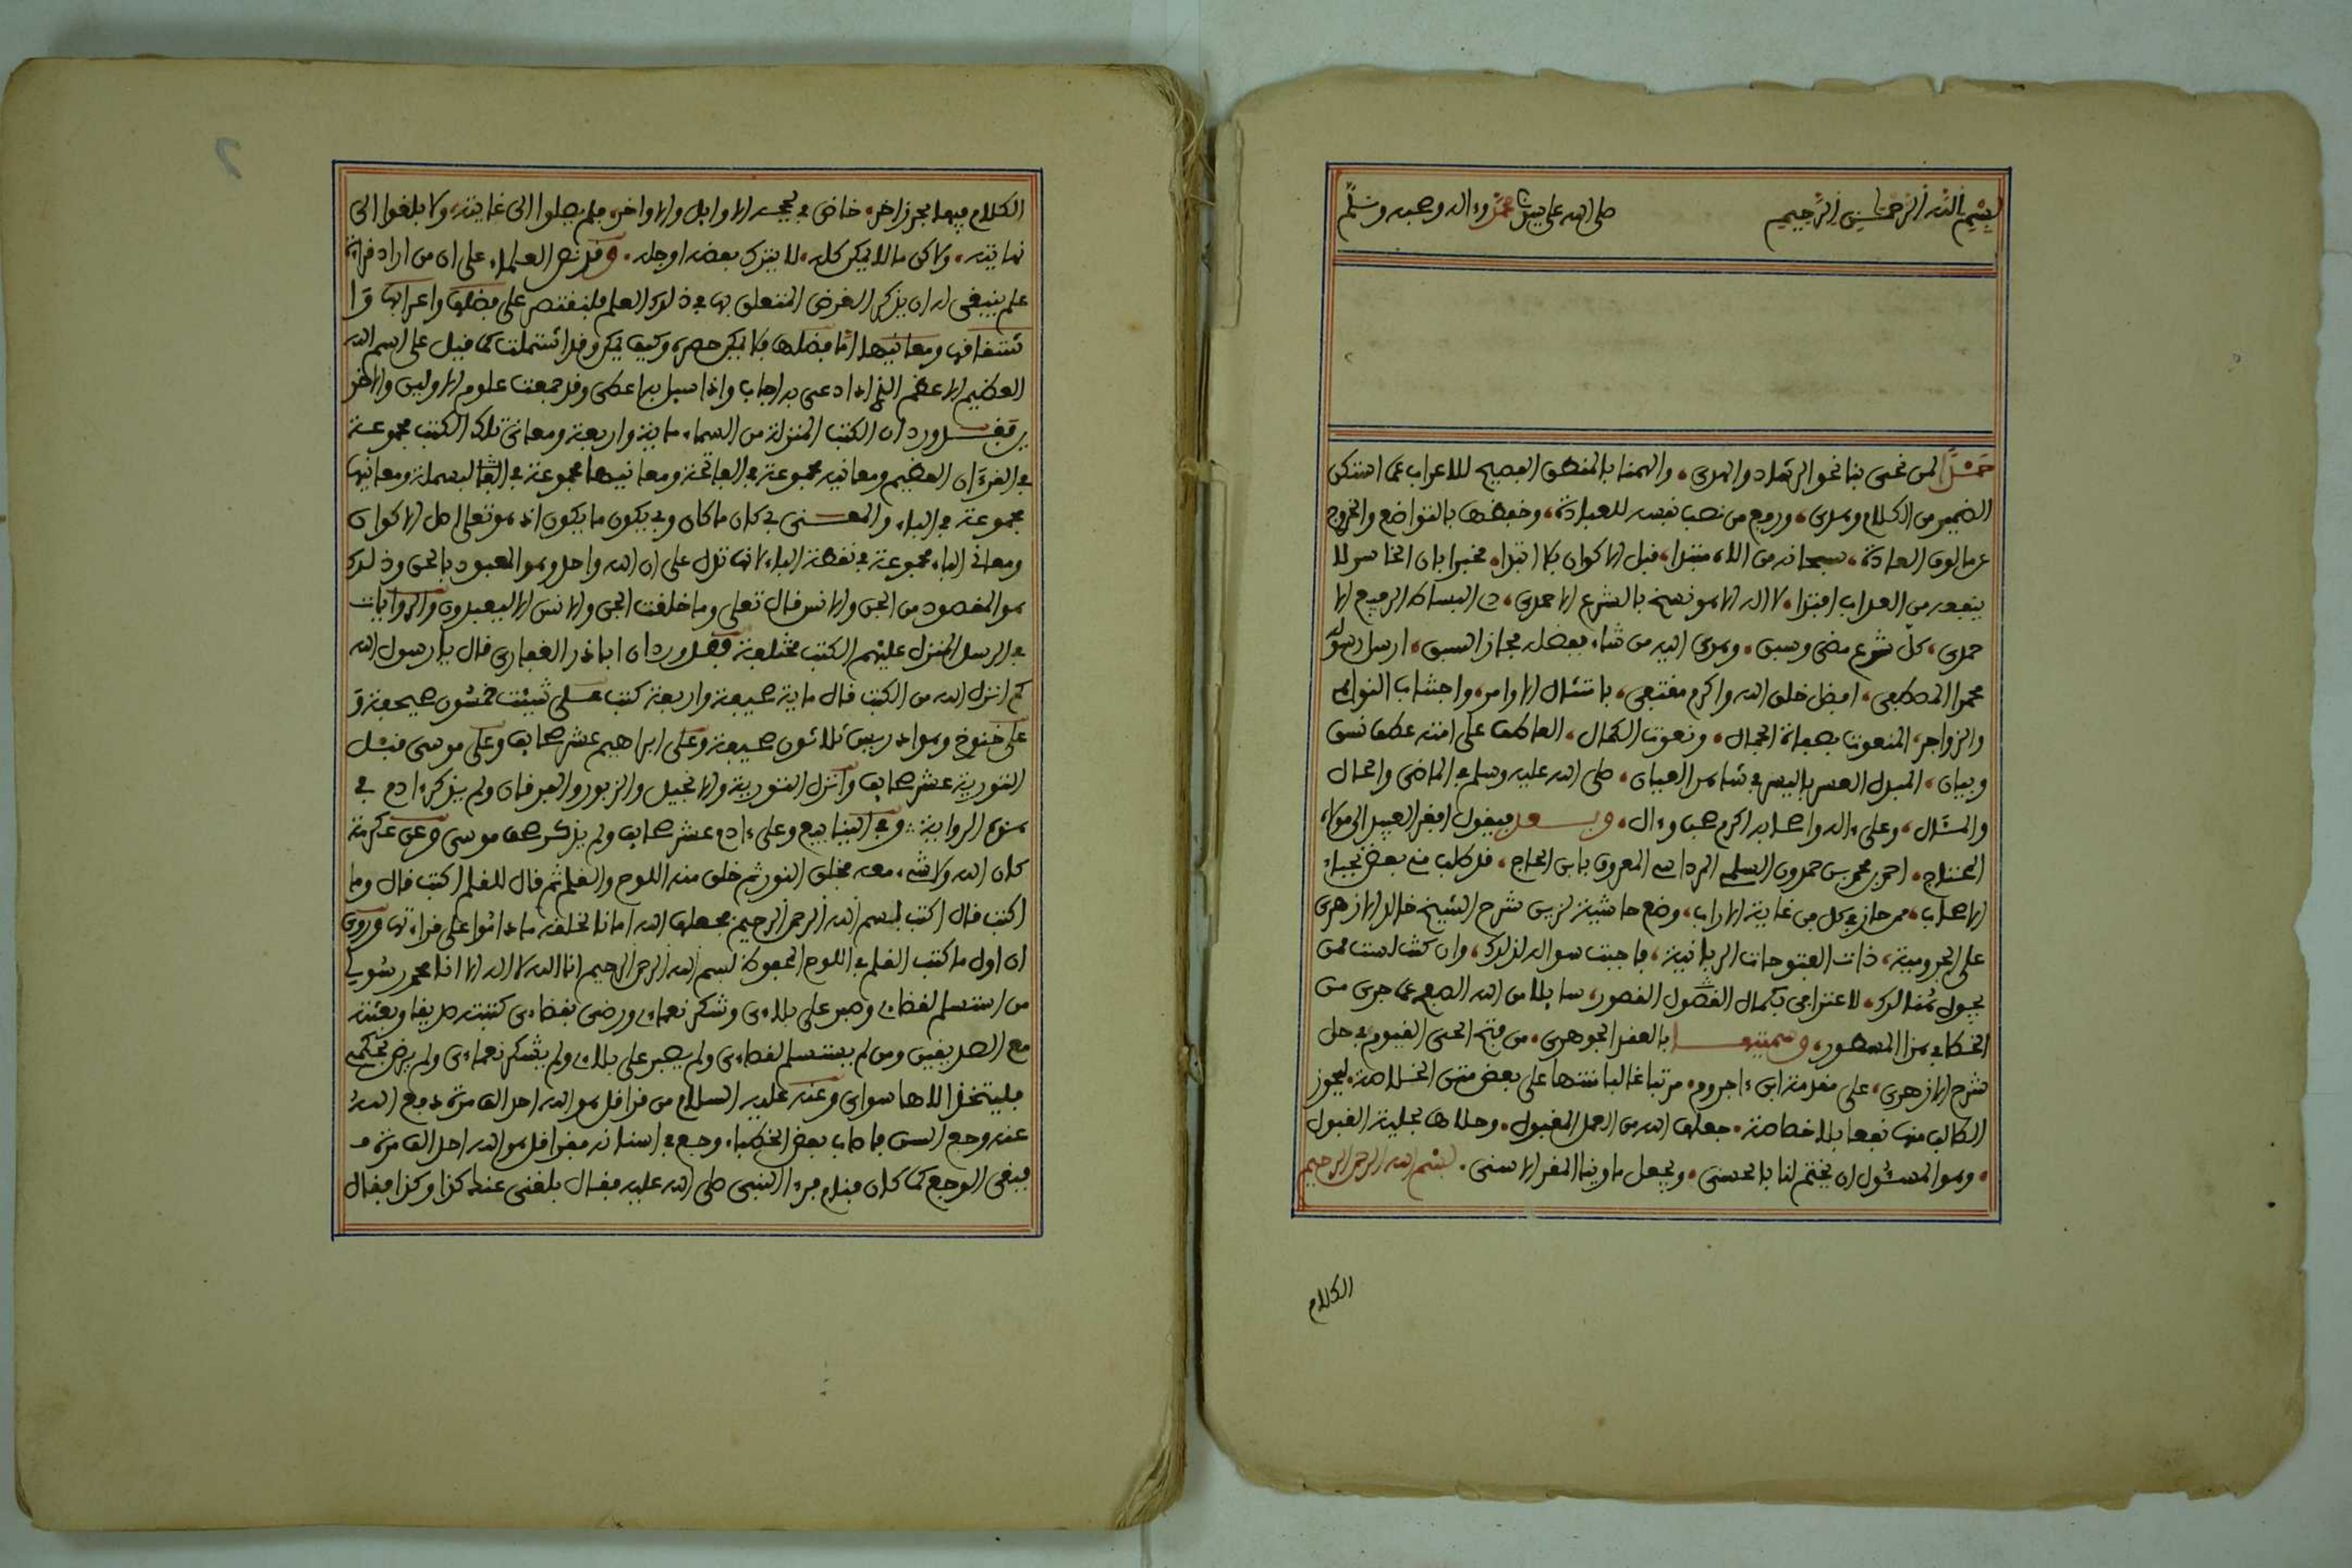 بسم الله الرحمن الرحيم صلى الله على سيدنا محمد وءاله وصحبه وسلم
حمدا لمن نحى بنا نحو الرشاد والهدى، والهمنا بالمنطق الفصيح للاعراب عما استكن
الضمير من الكلام وهدى، ورفع من نصب نفسه للعبادة، وخفضها بالتواضع والخروج
عن مالوف العادة، سبحانه من الاه منزل، قبل الاكوان بلا ابتدا، مخبرا بان الخاسر لا
ينفعه من العذاب افتدا، لا اله الا هو نسخ بالشرع الاحمدى، ذى البساط الرفيع الا
حمدى، كل شرع مضى وسبق، وهدى اليه من شاء بفضله فحاز السبق، ارسل رسوله
محمدا المصطفى، افضل خلق الله واكرم مقتفى، بامتثال الاوامر، واجتناب النواهى
والزواجر، المنعوت بصفات الجمال، ونعوت الكمال، العاطف على امته عطف نسق
وبيان، المبدل العسر باليسر فى شاهد العيان، صلى الله عليه وسلم فى الماضى والحال
والمثال، وعلى ءاله واصحابه اكرم صحب وءال، وبعد فيقول افقر العبيد الى مولاه
المحتاج، احمد بن محمد بن حمدون السلمى المرداسى المعروف بابن الحاج، قد طلب منى بعض نجباء
الاصحاب، ممن حاز فى كل من غاية الاراب، وضع حاشية تزين شرح الشيخ خالد الازهرى
على الجرومية، ذات الفتوحات الربانية، فاجبت سواله لذلك، وان كنت لست ممن
يجول هنالك، لاعترافى بكمال القصور، سايلا من الله الصفح عما جرى من
الخطا فى هذا المسطور، وسميتها بالعقد الجوهرى، من فتح الحى القيوم فى حل
شرح الازهرى، على مقدمة ابن ءاجروم، مرتبا غالبا منها على بعض متن الخلاصة، ليحوز
الطالب منها نفعا بلا خصاصة، جعلها الله من العمل المقبول، وحلاها بحلية القبول
وهو المسئول ان يختم لنا بالحسنى، ويجعل ماوينا المقر الاسنى، بسم الله الرحمن الرحيم
الكلام
الكلام فيها بحر زاخر، خاض فى لججه الاوايل والاواخر، فلم يصلوا الى غايته، ولا بلغوا الى
نهايته، ولاكن ما لا يمكن كله، لا يترك بعضه او جله، وقد نص العلماء على ان من اراد قراءة
علم ينبغى له ان يذكر الغرض المتعلق بها فى ذلك العلم فلنقتصر على فضلها واعرابها وا
شتقاقها ومعانيها اما فضلها فلا يمكن حصره وكيف يمكن وقد اشتملت كما قيل على اسم الله
العظيم الاعظم الذى اذا دعى به اجاب واذا سيل به اعطى وقد جمعت علوم الاولين والاخر
ين فقد ورد ان الكتب المنزلة من السماء ماية واربعة ومعانى تلك الكتب مجموعة
فى القرءان العظيم ومعانيه مجموعة فى الفاتحة ومعانيها مجموعة فى البسملة ومعانيها
مجموعة فى الباء والمعنى بى كان ما كان وبى يكون ما يكون اذ هو تعالى اصل الاكوان
ومعانى الباء مجموعة فى نقطة الباء لانها تدل على ان الله واحد وهو المعبود بالحق وذلك
هو المقصود من الجن والانس قال تعلى وما خلقت الجن والانس الا ليعبدون والروايات
فى الرسل المنزل عليهم الكتب مختلفة فقد ورد ان اباذر الغفارى قال يا رسول الله
كم انزل الله من الكتب قال ماية صحيفة واربعة كتب على شيئت خمسون صحيفة و
على خنوخ وهو ادريس ثلاثون صحيفة وعلى ابراهيم عشر صحايف وعلى موسى قبل
التورية عشر صحايف وانزل التورية والانجيل والزبور والفرقان ولم يذكر ءادم فى
هذه الرواية وفى الينابيع وعلى ءادم عشر صحايف ولم يذكر صحف موسى وعن عكرمة
كان الله ولا شىء معه فخلق النور ثم خلق منه اللوح والقلم ثم قال للقلم اكتب قال وما
اكتب قال اكتب بسم الله الرحمن الرحيم فجعلها الله امانا لخلقه ما داموا على قراءتها وروى
ان اول ما كتب القلم فى اللوح المحفوظ بسم الله الرحمن الرحيم انا الله لا اله الا انا محمد رسولى
من استسلم لقضاءى وصبر على بلاءى وشكر نعماءى ورضى بقضاءى كتبته صديقا وبعثته
مع الصديقين ومن لم يستسلم لقضاءى ولم يصبر على بلاءى ولم يشكر نعماءى ولم يرض بحكمى
فليتخذ الاها سواى وعنه عليه السلام من قرا قل هو الله احد الف مرة دفع الله
عنه وجع السن فاصاب بعض الخطباء وجع فى اسنانه فقرا قل هو الله احد الف مرة فـ
فبقى الوجع كما كان فنام فرءا النبى صلى الله عليه فقال بلغنى عنك كذا وكذا فقال